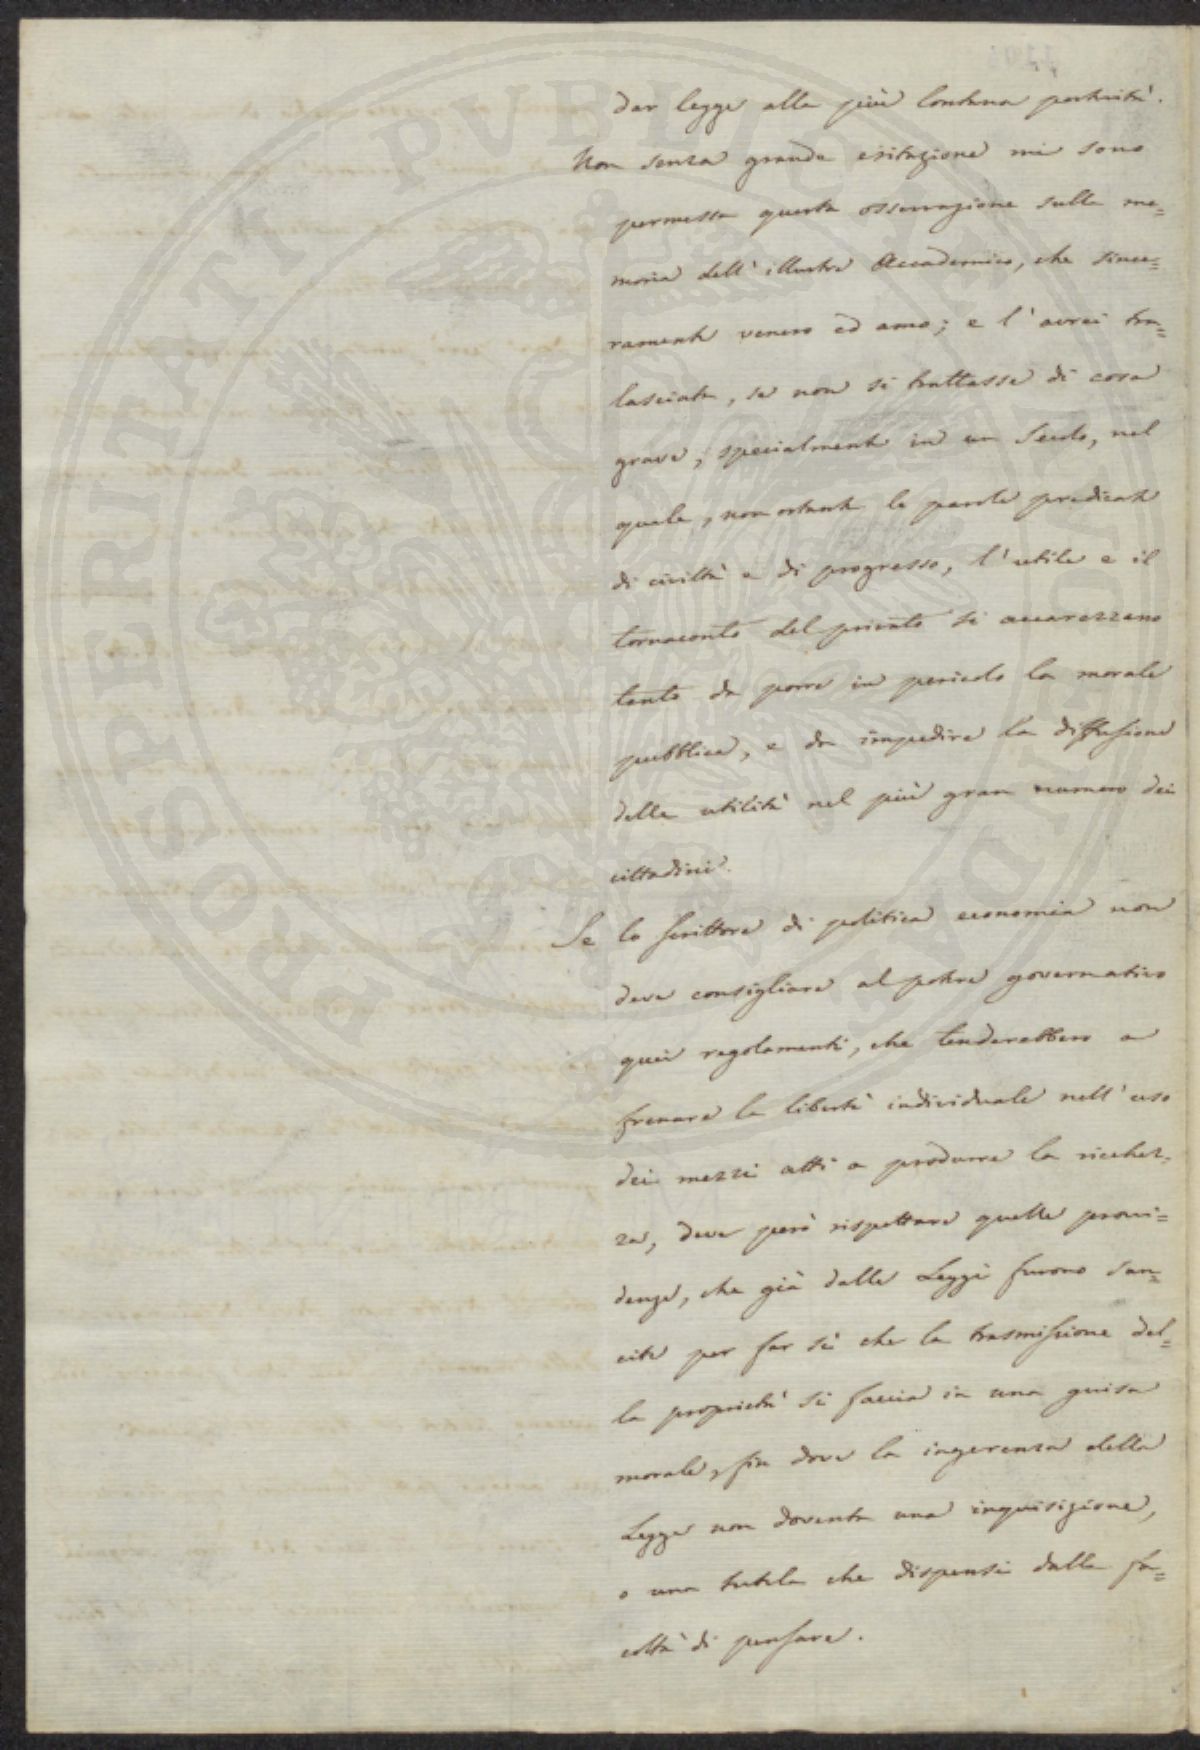 dar legge alla più lontana posterità.
Non senza grande esitazione mi sono
permessa questa osservazione sulla me=
moria dell'illustre Accademico, che since=
ramente venero ed amo; e l'avrei tra=
lasciata, se non si trattasse di cosa
grave, specialmente in un Secolo, nel
quale, non ostante le parole predicate
di civiltà e di progresso, l'utile e il
tornaconto del privato si accarezzano
tanto da porre in pericolo la morale
pubblica, e da impedire la diffusione
della utilità nel più gran numero dei
cittadini.
Se lo scrittore di politica economia non
deve consigliare al potere governativo
quei regolamenti, che tenderebbero a
frenare la libertà individuale nell'uso
dei mezzi atti a produrre la ricchez=
za, deve però rispettare quelle provvi=
denze, che già dalle Leggi furono san=
cite per far sì che la trasmissione del=
la proprietà si faccia in una guisa
morale, fin dove la ingerenza della
Legge non doventa una inquisizione,
o una tutela che dispensi dalla fa=
coltà di pensare.
PROSPERITATI PVBLICAE AVGENDAE